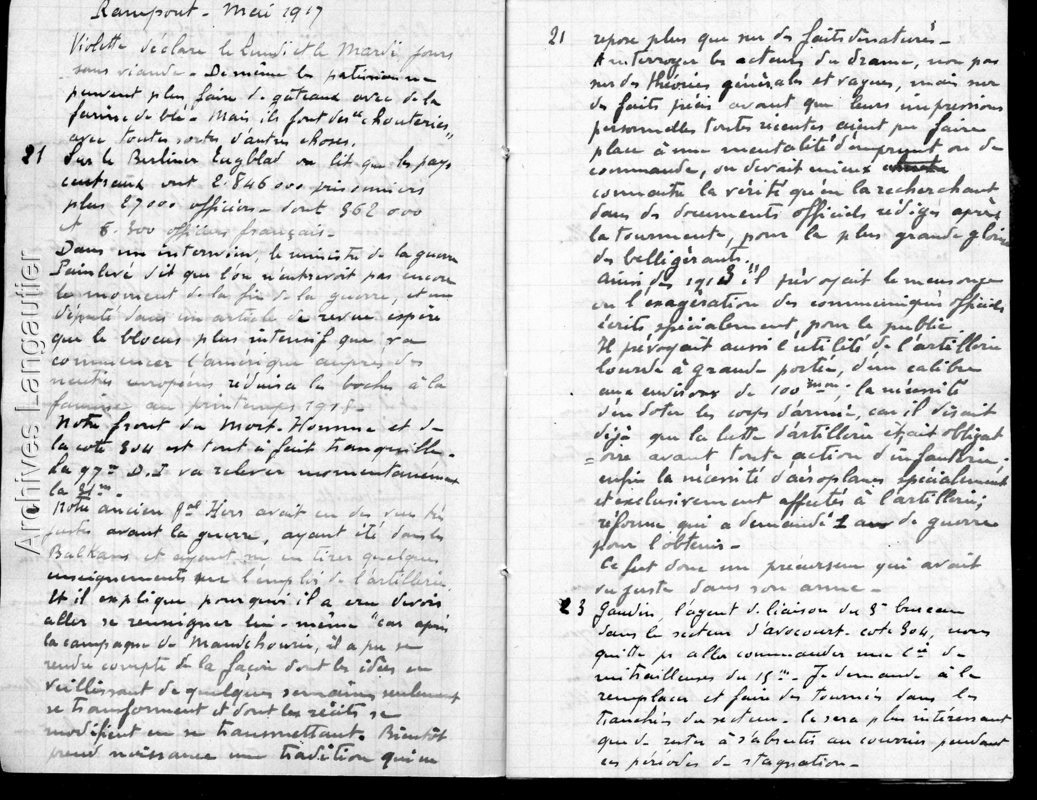 Rampont - Mai 1917
Violette déclare le Lundi et le Mardi jours
sans viande. De même les patissiers ne
peuvent plus faire de gâteaux avec de la
farine de blé. Mais ils font des "chouteries"
avec toutes sortes d'autres choses.
21 Sur le Berliner Tagblad on lit que les pays
centraux ont 2.846 000 prisonniers
plus 27000 officiers - dont 362 000
et 6.300 officiers français -
Dans un interview, le ministre de la guerre
Painlevé dit que l'on n'entrevoit pas encore
le moment de la fin de la guerre, et un
député dans un article de revue espère
que le blocus plus intensif que va
commencer l'Amérique auprès des
neutres européens réduira les boches à la
famine au printemps 1918 -
Notre front du Mort-Homme et de
la cote 304 est tout à fait tranquille -
La 97me D.I va relever momentanément
la 31me -
Notre ancien Gal Herr avait eu des vues très
justes avant la guerre, ayant été dans les
Balkans et ayant su en tirer quelques
enseignements sur l'emploi de l'artillerie
Et il explique pourquoi il a cru devoir
aller se renseigner lui-même "car après
la campagne de Mandchourie, il a pu se
rendre compte de la façon dont les idées en
vieillissant de quelques semaines seulement
se transforment et dont les récits se
modifient en se transmettant. Bientôt
prend naissance une tradition qui ne
21 repose plus que sur des faits dénaturés -
A interroger les acteurs du drame, non pas
sur des théories générales et vagues, mais sur
des faits précis avant que leurs impressions
personnelles toutes récentes aient pu faire
place à une mentalité d'emprunt ou de
commande, on devait mieux
connaître la vérité qu'en la recherchant
dans des documents officiels rédigés après
la tourmente, pour la plus grande gloire
des belligérants.
Ainsi dès 1913 il prévoyait le mensonge
ou l'exagération des communiqués officiels
écrits spécialement, pour le public
Il prévoyait aussi l'utilité de l'artillerie
lourde à grande portée, d'un calibre
aux environs de 100 mm; la nécessité
d'en doter les corps d'armée, car il disait
déjà que la lutte d'artillerie était obligat
=oire avant toute action d'infanterie;
enfin la nécessité d'aéroplanes spécialement
et exclusivement affectés à l'artillerie;
réforme qui a demandé 2 ans de guerre
pour l'obtenir -
Ce fut donc un précurseur qui avait
vu juste dans son arme -
23 Gaudin, l'agent de liaison du 3e bureau
dans le secteur d'Avocourt - cote 304, nous
quitte pr aller commander une Cie de
mitrailleuses du 15me - Je demande à le
remplacer et faire des tournées dans les
tranchées du secteur - Ce sera plus intéressant
que de rester à s'abrutir au courrier pendant
ces périodes de stagnation -
Archives Langautier